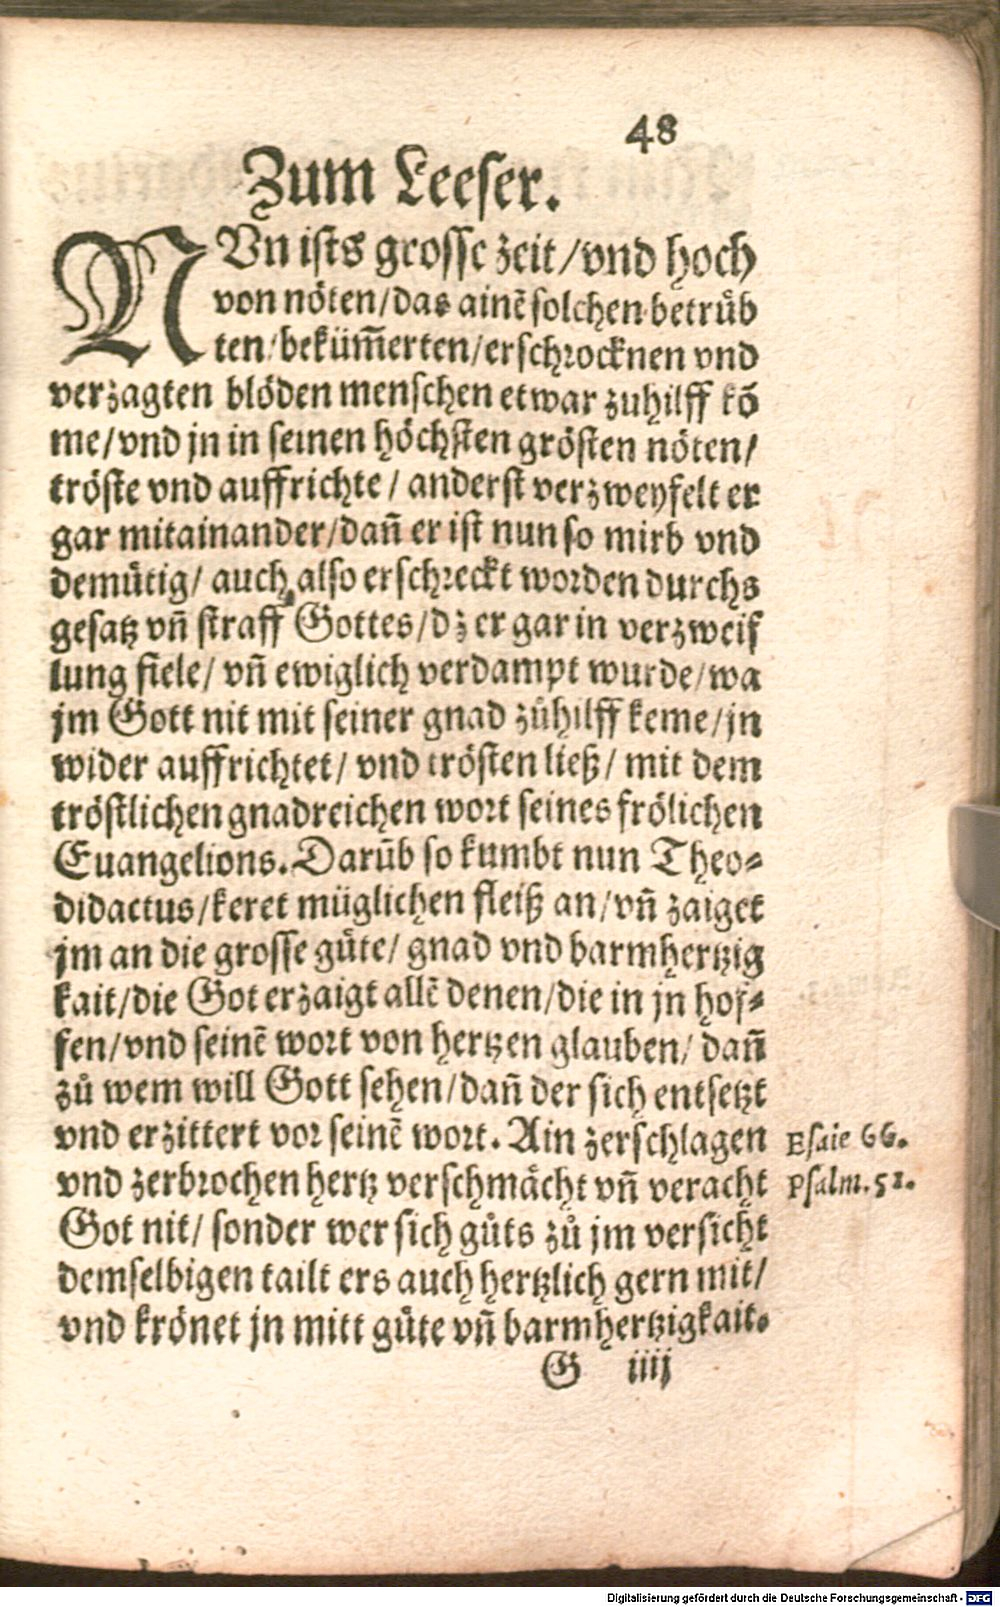 48
Zum Leeser.
NVn ists grosse zeit/vnd hoch
von nöten/das ainē solchen betrüb
ten/bekūmerten/erschrocknen vnd
verzagten blöden menschen etwar zuhilff kō
me/vnd jn in seinen höchsten grösten nöten/
tröste vnd auffrichte/ anderst verzweyfelt er
gar mitainander/dañ er ist nun so mirb vnd
demütig/ auch also erschreckt worden durchs
gesatz vñ straff Gottes/dz er gar in verzweif
lung fiele/ vñ ewiglich verdampt wurde/wa
jm Gott nit mit seiner gnad zůhilff keme/jn
wider auffrichtet/ vnd trösten ließ/ mit dem
tröstlichen gnadreichen wort seines frölichen
Euangelions. Darūb so kumbt nun Theo-
didactus/keret müglichen fleiß an/vñ zaiget
jm an die grosse güte/ gnad vnd barmhertzig
kait/die Got erzaigt allē denen/die in jn hof-
fen/vnd seinē wort von hertzen glauben/ dañ
zů wem will Gott sehen/dañ der sich entsetzt
vnd erzittert vor seinē wort. Ain zerschlagen
vnd zerbrochen hertz verschmächt vñ veracht
Got nit/ sonder wer sich gůts zů jm versicht
demselbigen tailt ers auch hertzlich gern mit/
vnd krönet jn mitt güte vñ barmhertzigkait.
Esaie 66.
Psalm. 51.
G iiij
Digitalisierung gefördert durch die Deutsche Forschungsgemeinschaft - DFG